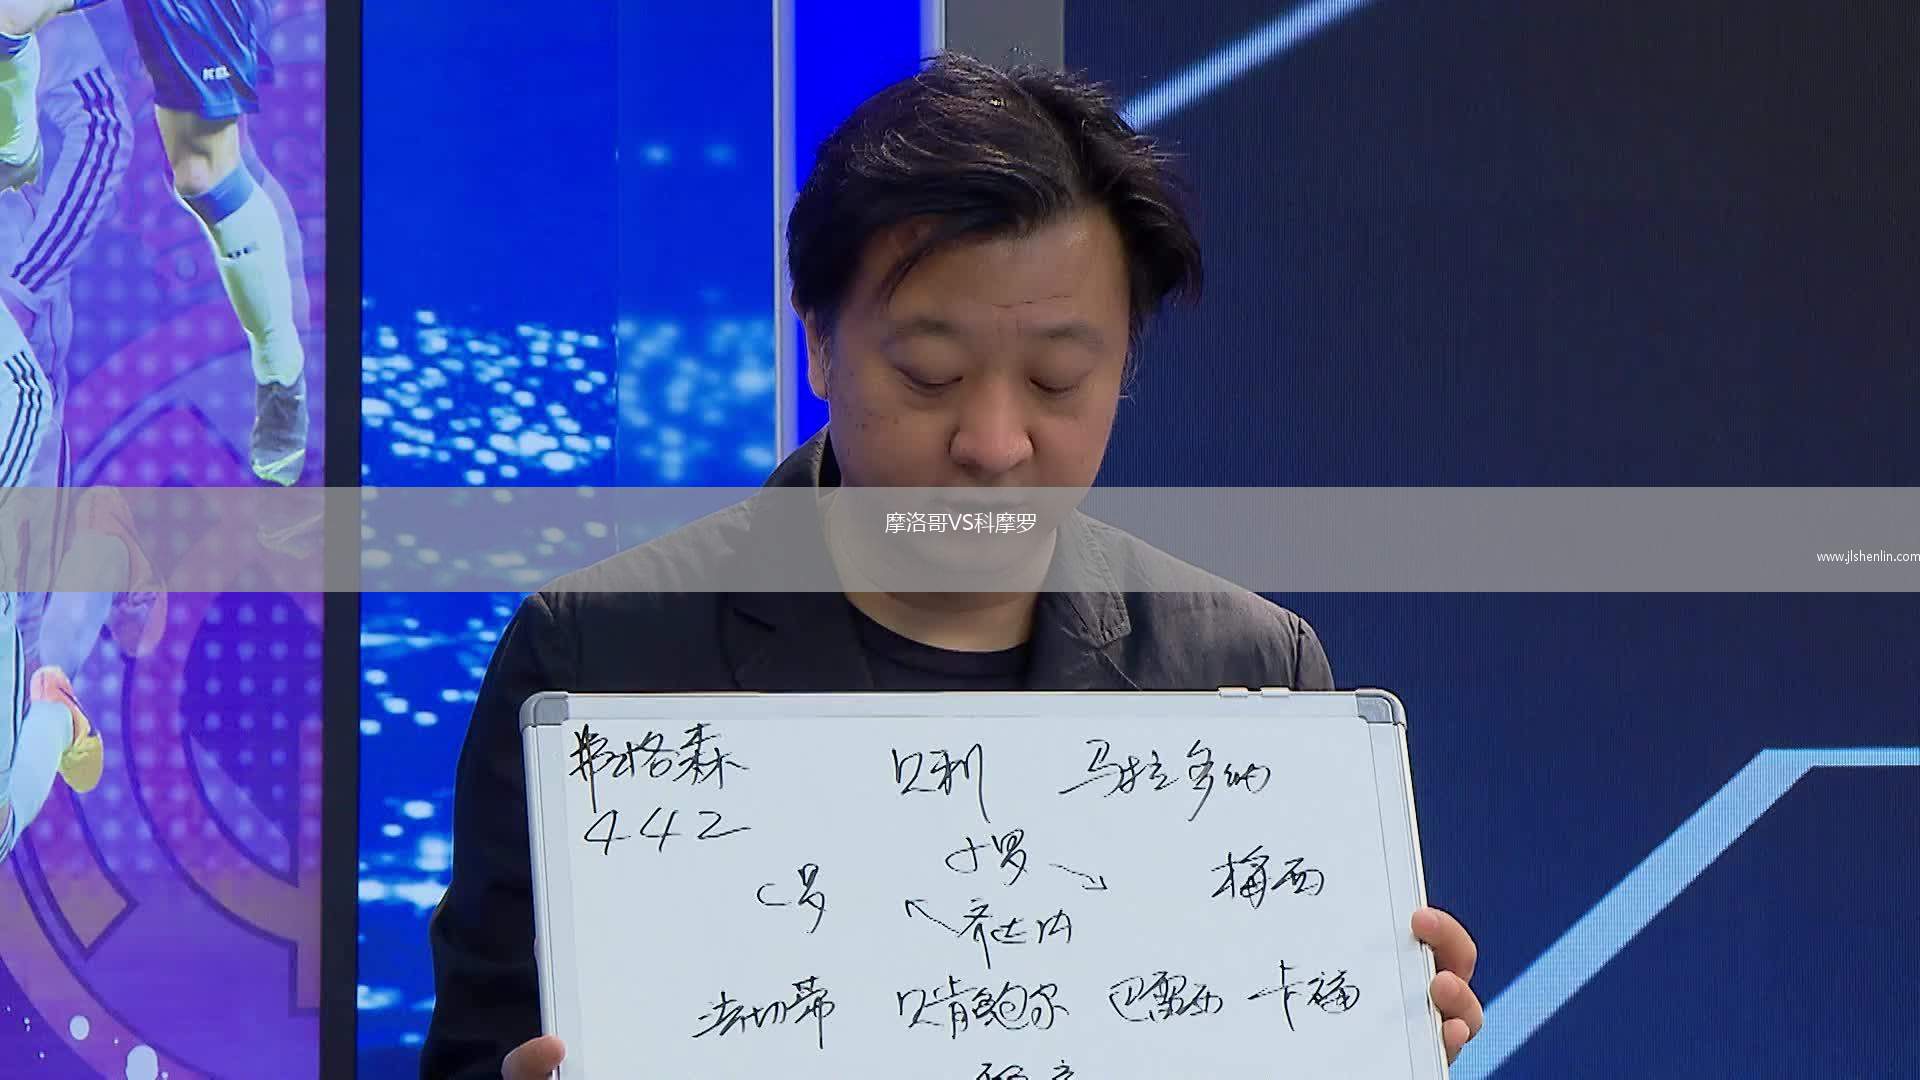 摩洛哥VS科摩罗
www.jlshenlin.com
弗格森 贝利 马拉多纳
442
小罗
C罗 梅西
齐达内
法切蒂 贝肯鲍尔 巴雷西 卡福